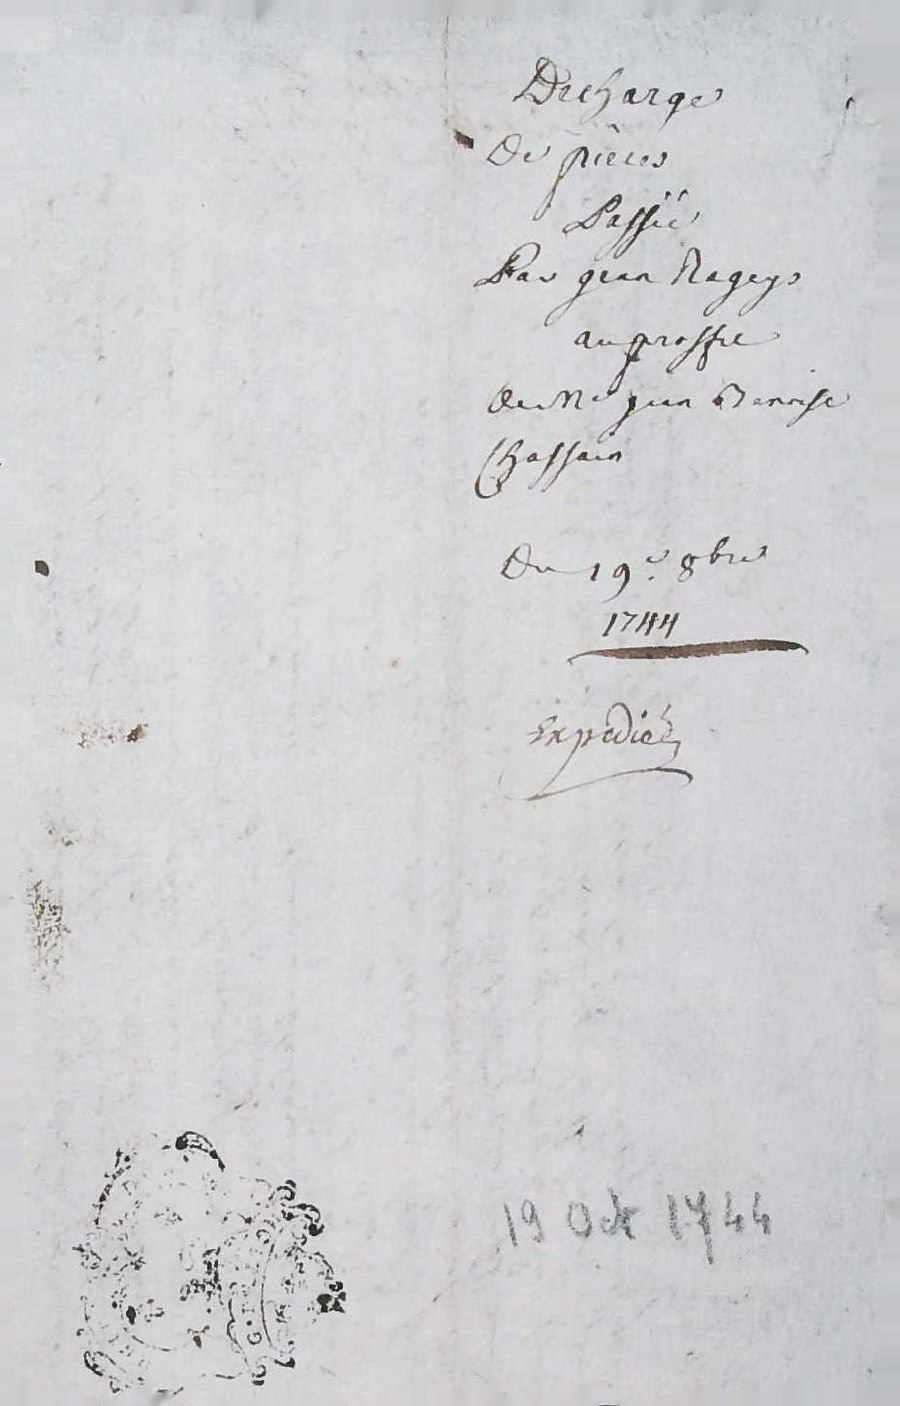 Decharge
De pièces
Passée
Par jean Rageys
au proffit
de Me jean Benoist
Chassain
Du 19e. 8bre
1744
Expedié
19 Oct 1744